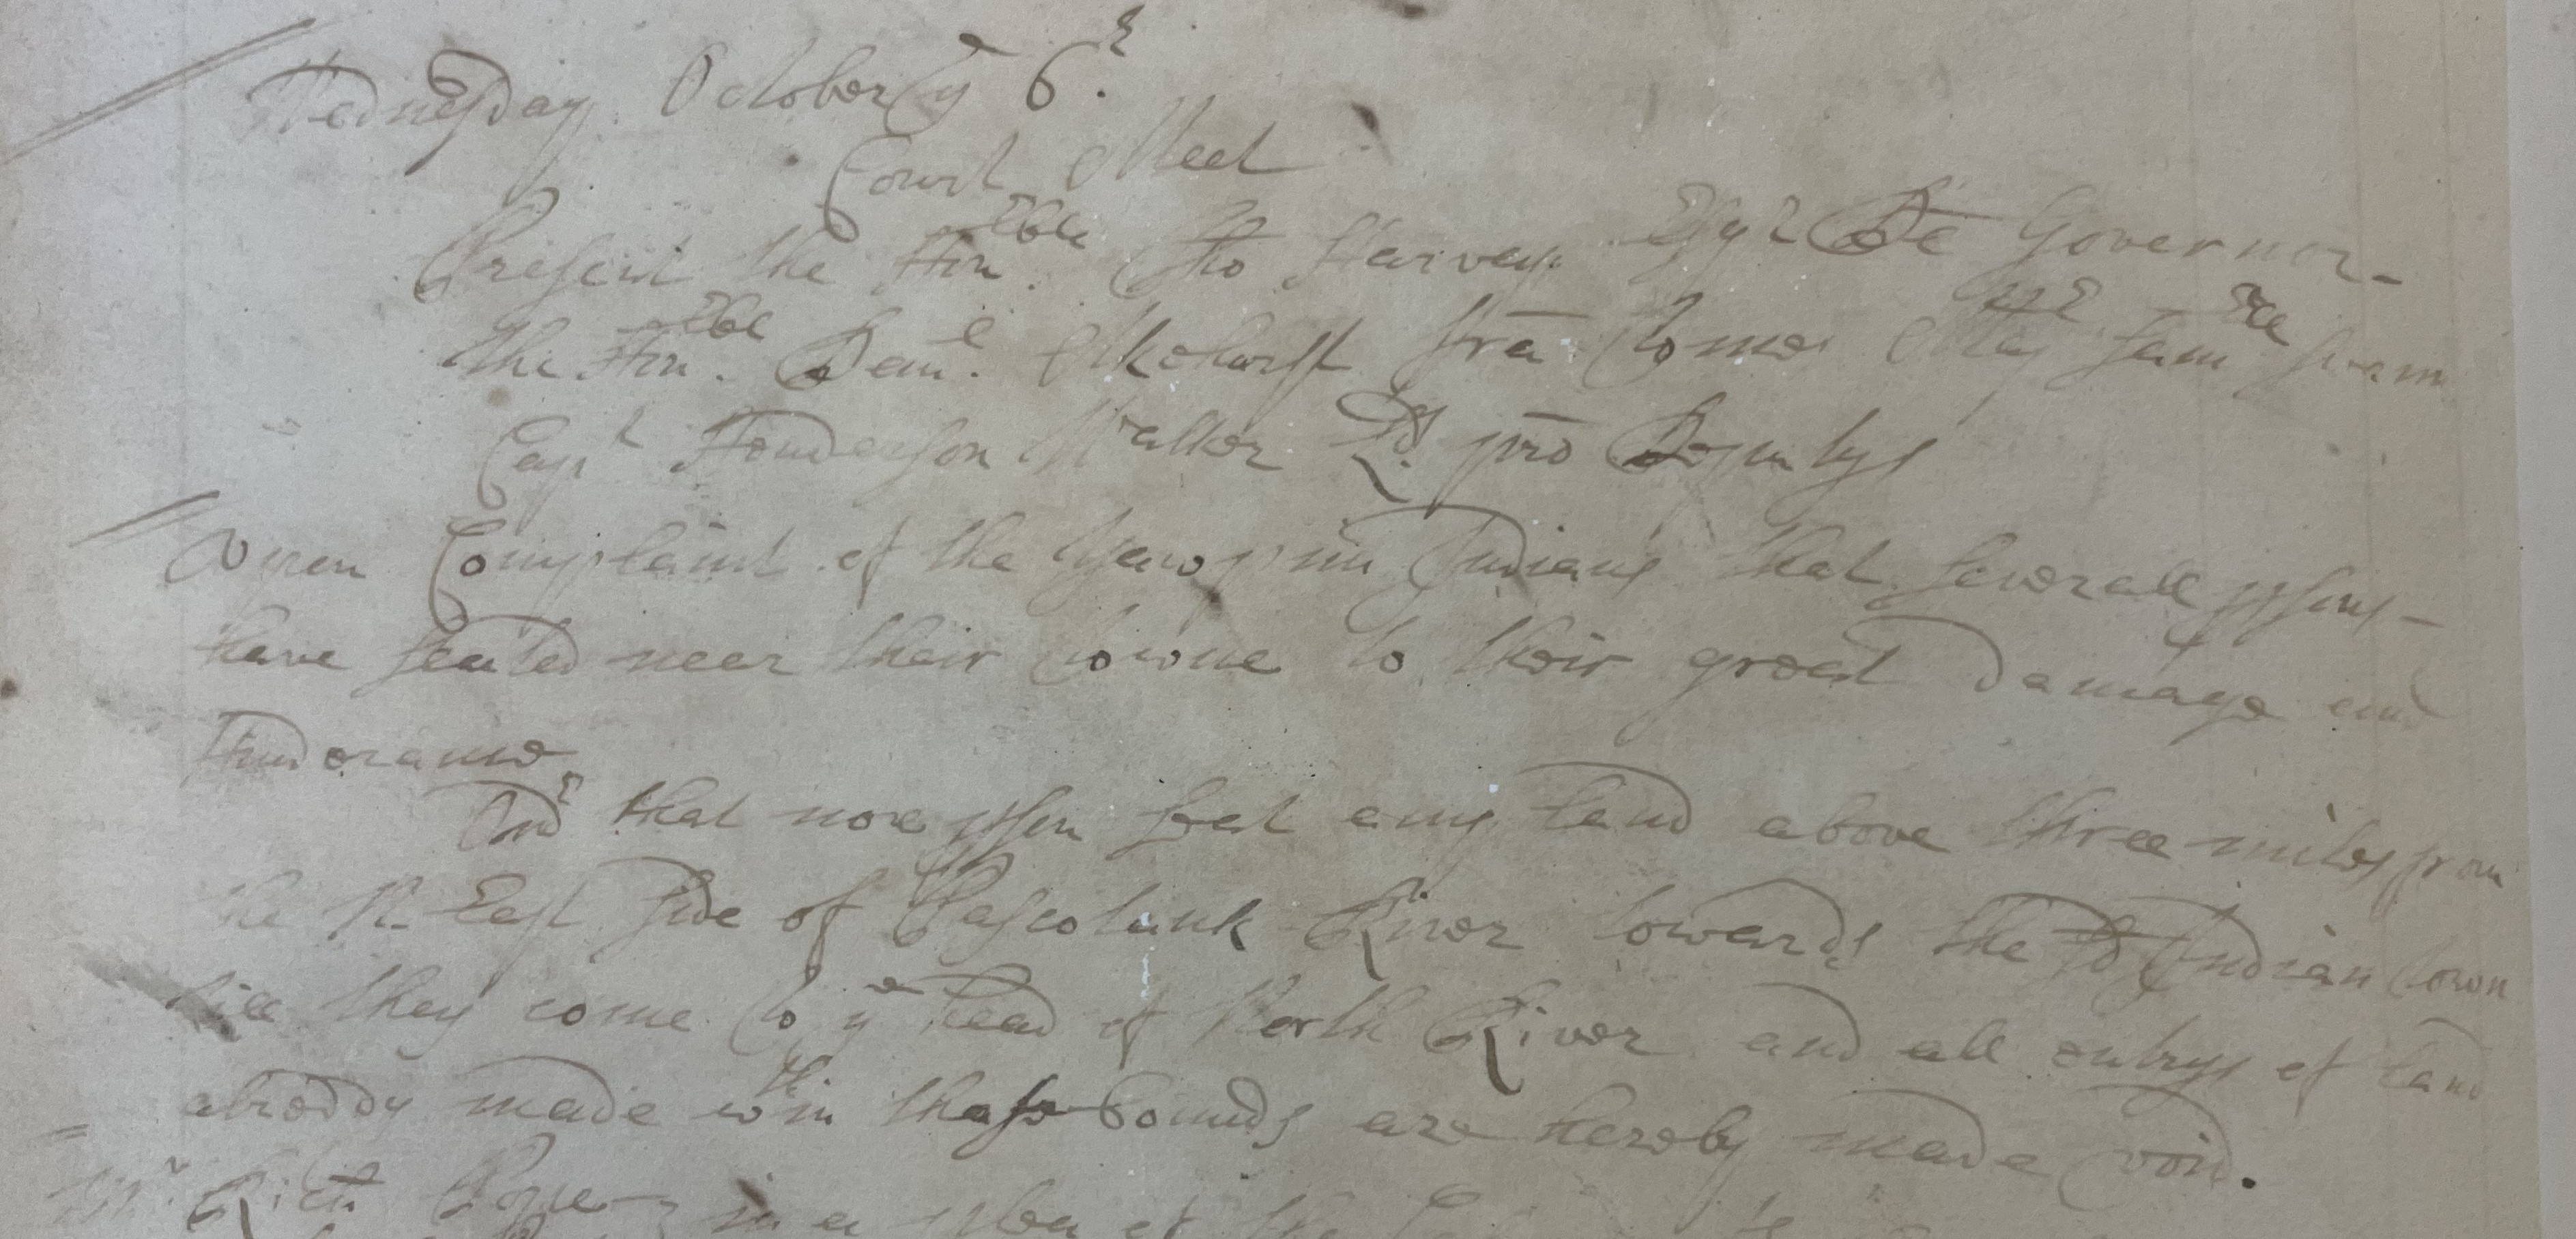 Wednesday October ye 6th
Court Meet
Present the Honble Tho Harvey Esqr De Governor
The Honble Danl Akehurst Fra Tomes Majr Saml Swann
Capt Henderson Walker Lds pro Deputys
Upon Complaint of the Yawopim Indians that severall psons
have seated neer their towne to their great damage and
Hinderance
Ordr that noe pson seat any land above three miles from
the N. East side of Pascotank River towards the sd Indian town
till they come to ye head of North River and all entrys of land
alreddy made wthin those bounds are hereby made void.
Mr Richd Pope in a plea of the